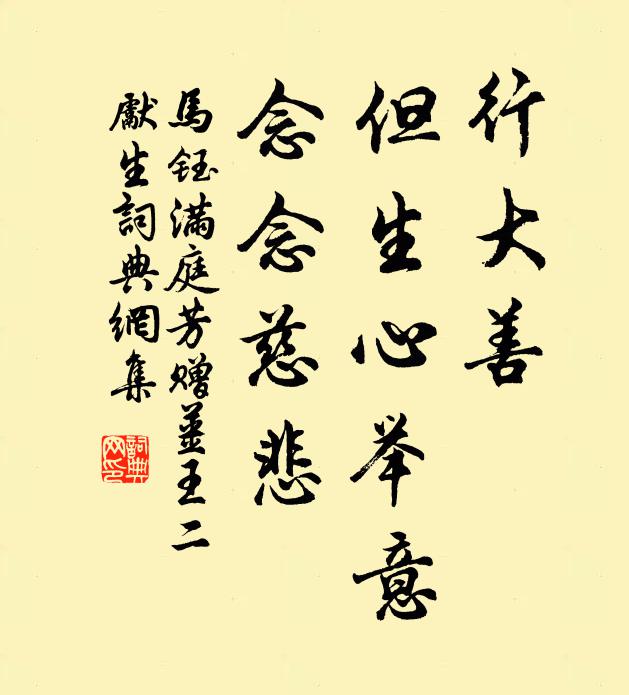 行大善
但生心举意
念念慈悲
馬鈺满庭芳赠姜王二
獻生詞典網集
詞典
网印